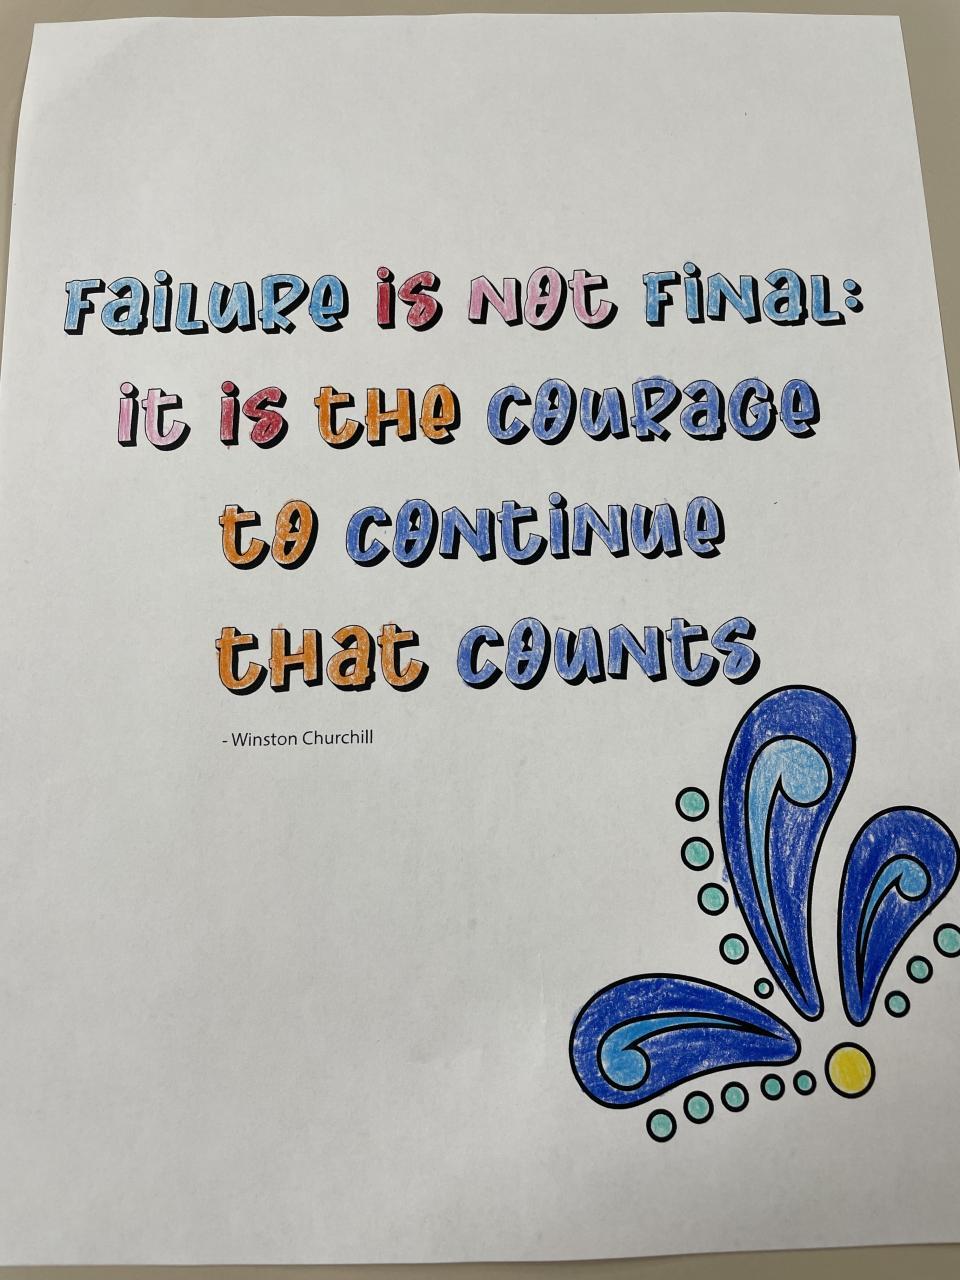 Failure is not final:
it is the courage
to continue
that counts
- Winston Churchill